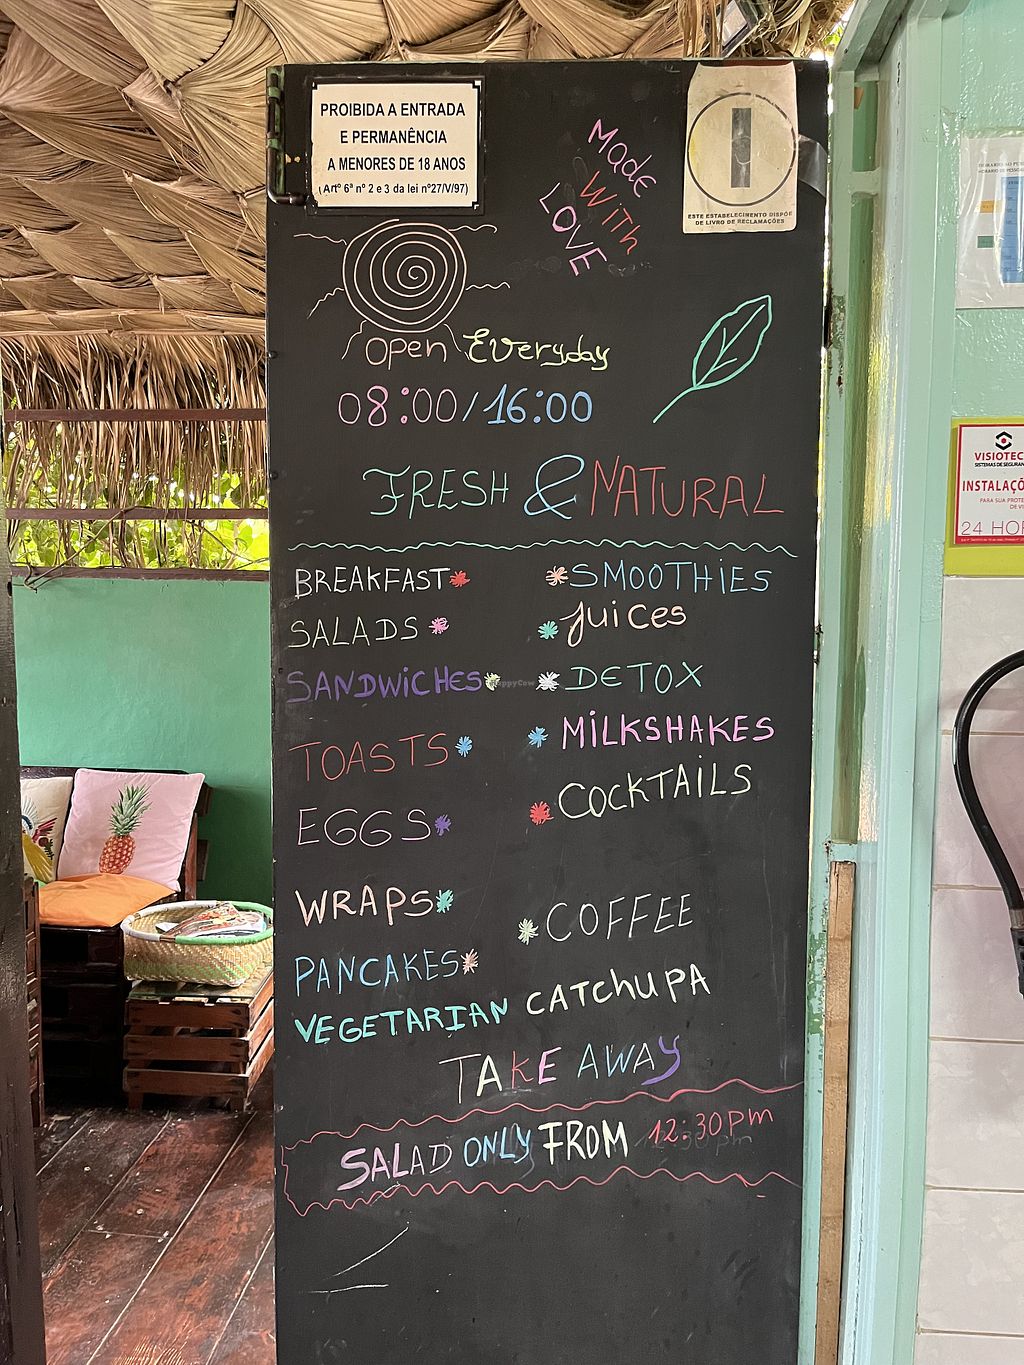 PROIBIDA A ENTRADA
E PERMANÊNCIA
A MENORES DE 18 ANOS
(Artº 6ª nº 2 e 3 da lei nº27/V/97)
Made
WITh
LOVE
ESTE ESTABELECIMENTO DISPÕE
DE LIVRO DE RECLAMAÇÕES
Open Everyday
08:00/16:00
FRESH & NATURAL
BREAKFAST
SALADS
SANDWiCHES
TOASTS
EGGS
WRAPS
PANCAKES
SMOOTHiES
Juices
DETOX
MiLKSHAKES
COCKTAILS
COFFEE
VEGETARIAN CATChUPA
TAKE AWAY
SALAD ONLY FROM 12:30pm
HappyCow
VISIOTEC
SISTEMAS DE SEGURAN
INSTALAÇÕ
PARA SUA PROTE
24 HOR